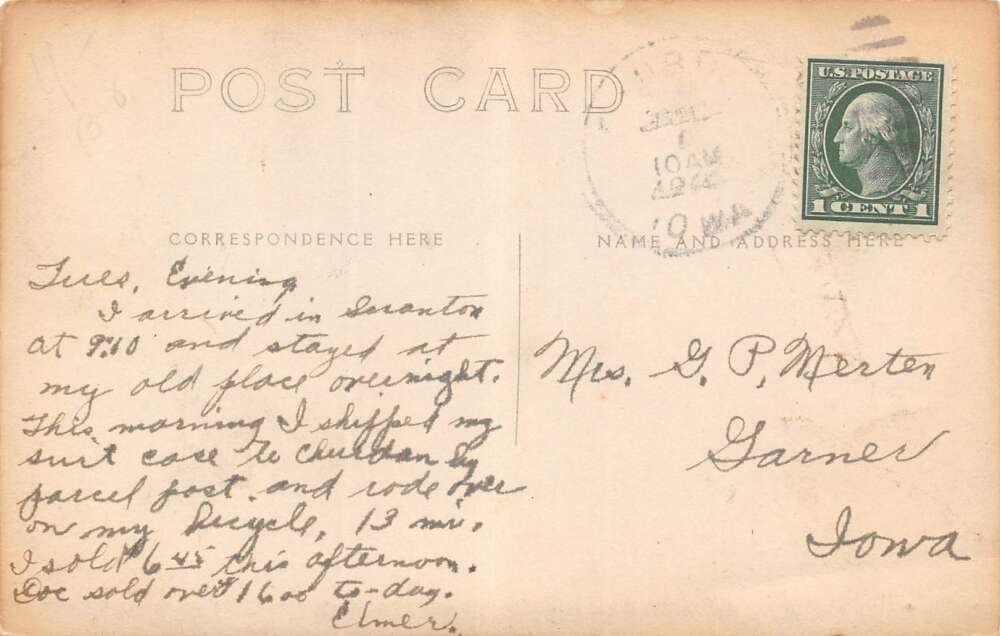 POST CARD
10 AM
IOWA
U.S. POSTAGE
1 CENT 1
CORRESPONDENCE HERE
NAME AND ADDRESS HERE
Tues. Evening
I arrived in Scranton
at 9:10 and stayed at
my old place overnight.
This morning I shipped my
suit case to Churdan by
parcel post and rode over
on my bicycle, 13 mi.
I sold 6 45 this afternoon.
Doc sold over 16 00 to-day.
Elmer.
Mrs. G. P. Merten
Garner
Iowa